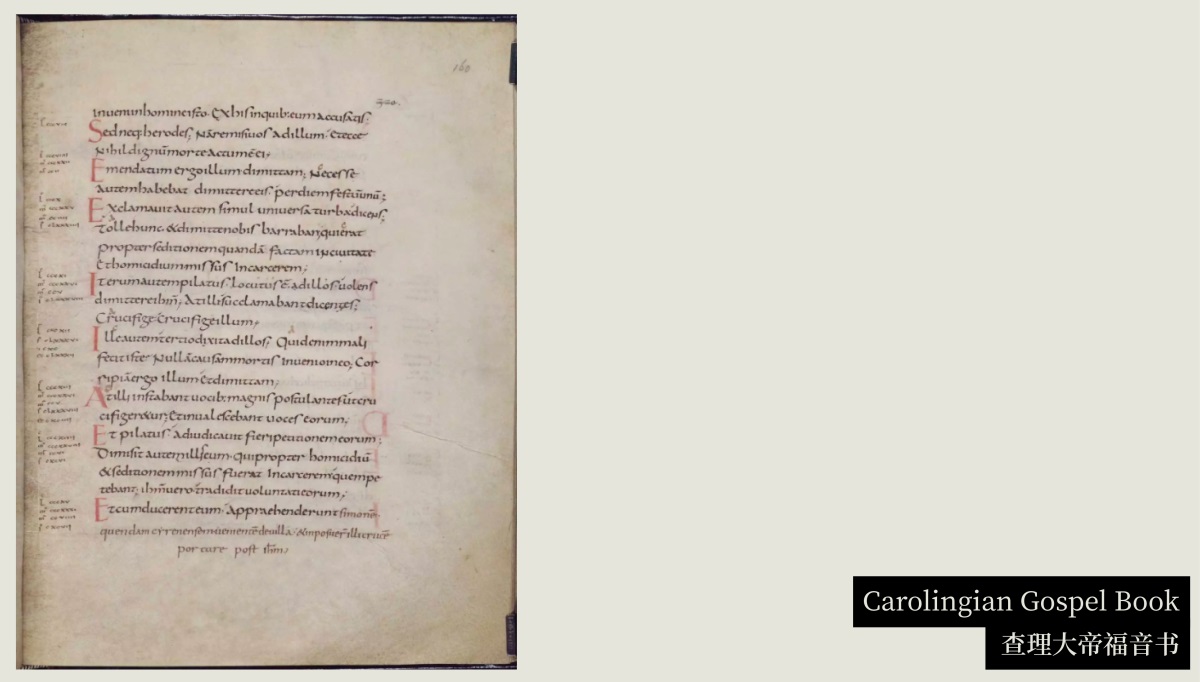 160
inuenin homine isto. Ex his inquib: eum accusatis;
Sed neq; herodes; Nā remisi uos ad illum. Et ecce
Nihil dignū morte actum ē ei.
Emendatum ergo illum dimittam; Necesse
autem habebat dimittere eis. per diem festū unū;
Exclamauit autem simul uniuersa turba dicens;
Tolle hunc. & dimitte nobis barraban, qui erat
propter seditionem quandā factam in ciuitate
Et homicidium missus In carcerem;
Iterum autem pilatus. locutus ē ad illos uolens
dimittere ihm̄; At illi succlamabant dicentes;
Crucifige. Crucifige illum;
Ille autem tertio dixit ad illos; Quid enim mali
fecit iste. Nullā causam mortis Inuenio in eo; Cor
ripiā ergo illum Et dimittam;
At illi instabant uocib; magnis postulantes ut cru
cifigeretur; Et inualescebant uoces eorum;
Et pilatus. adiudicauit fieri petitionem eorum;
Dimisit autem illis eum. qui propter homicidiū
& seditionem missus fuerat In carcerem quem pe
tebant; ihm̄ uero tradidit uoluntati eorum;
Et cum ducerent eum. Appraehenderunt simonē
quendam cyrenensem uenientē de uilla. & Imposuer̄ illi crucē
portare post ihm̄;
Carolingian Gospel Book
查理大帝福音书